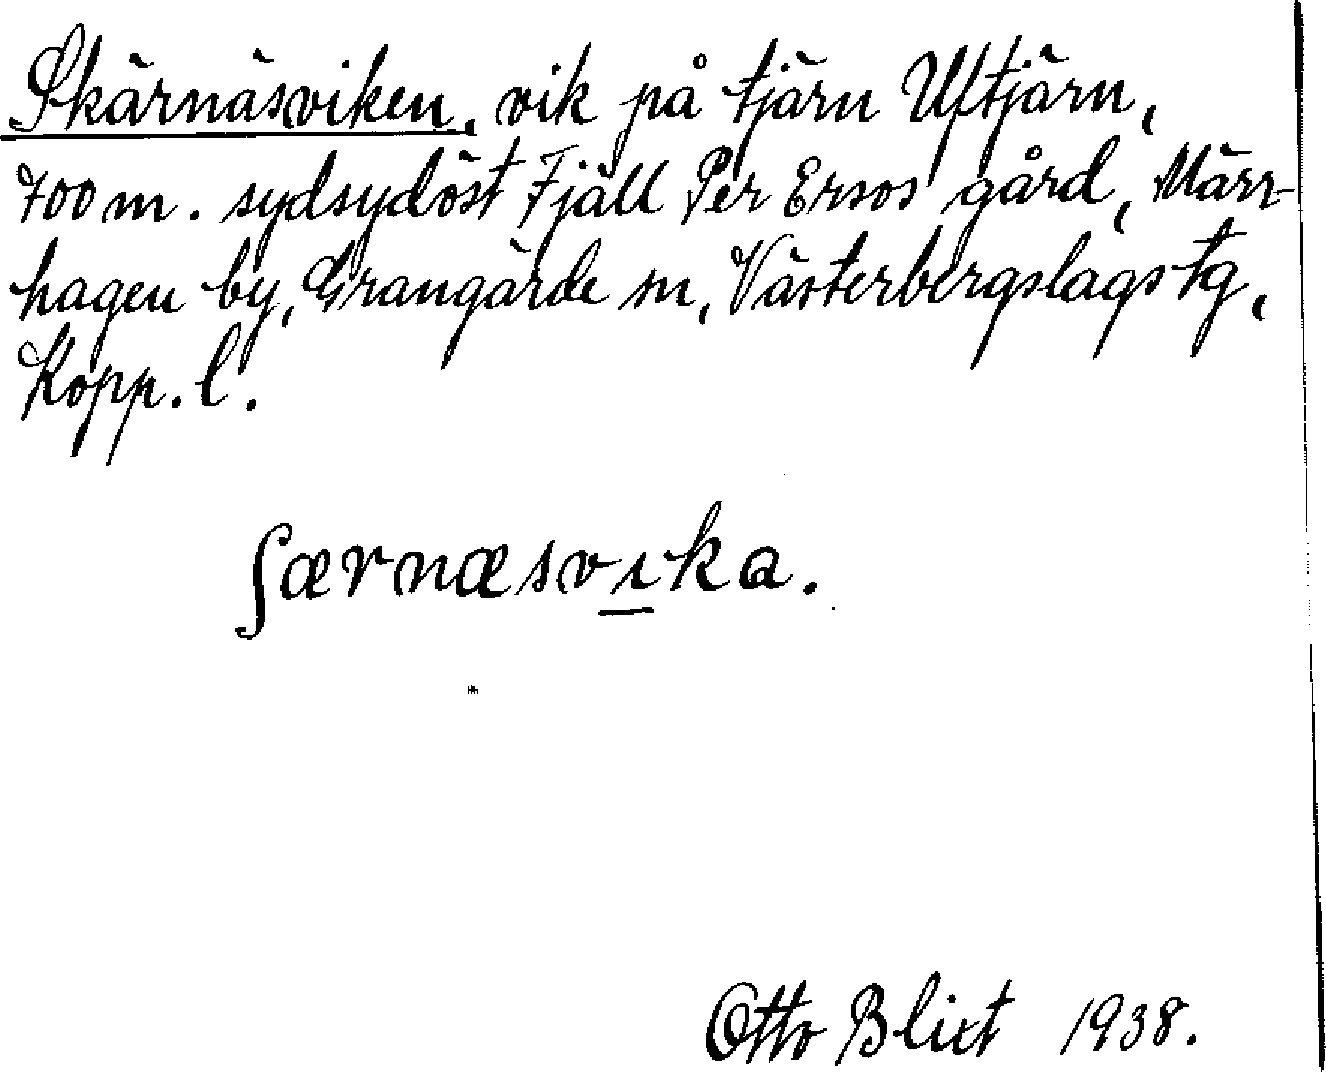 Skärnäsviken, vik på tjärn Uftjärn,
700 m. sydsydöst Fjäll Per Ersos gård, Märr-
hagen by, Grangärde sn, Västerbergslags tg,
Kopp. l.
ʃærnæsvıka.
Otto Blixt 1938.